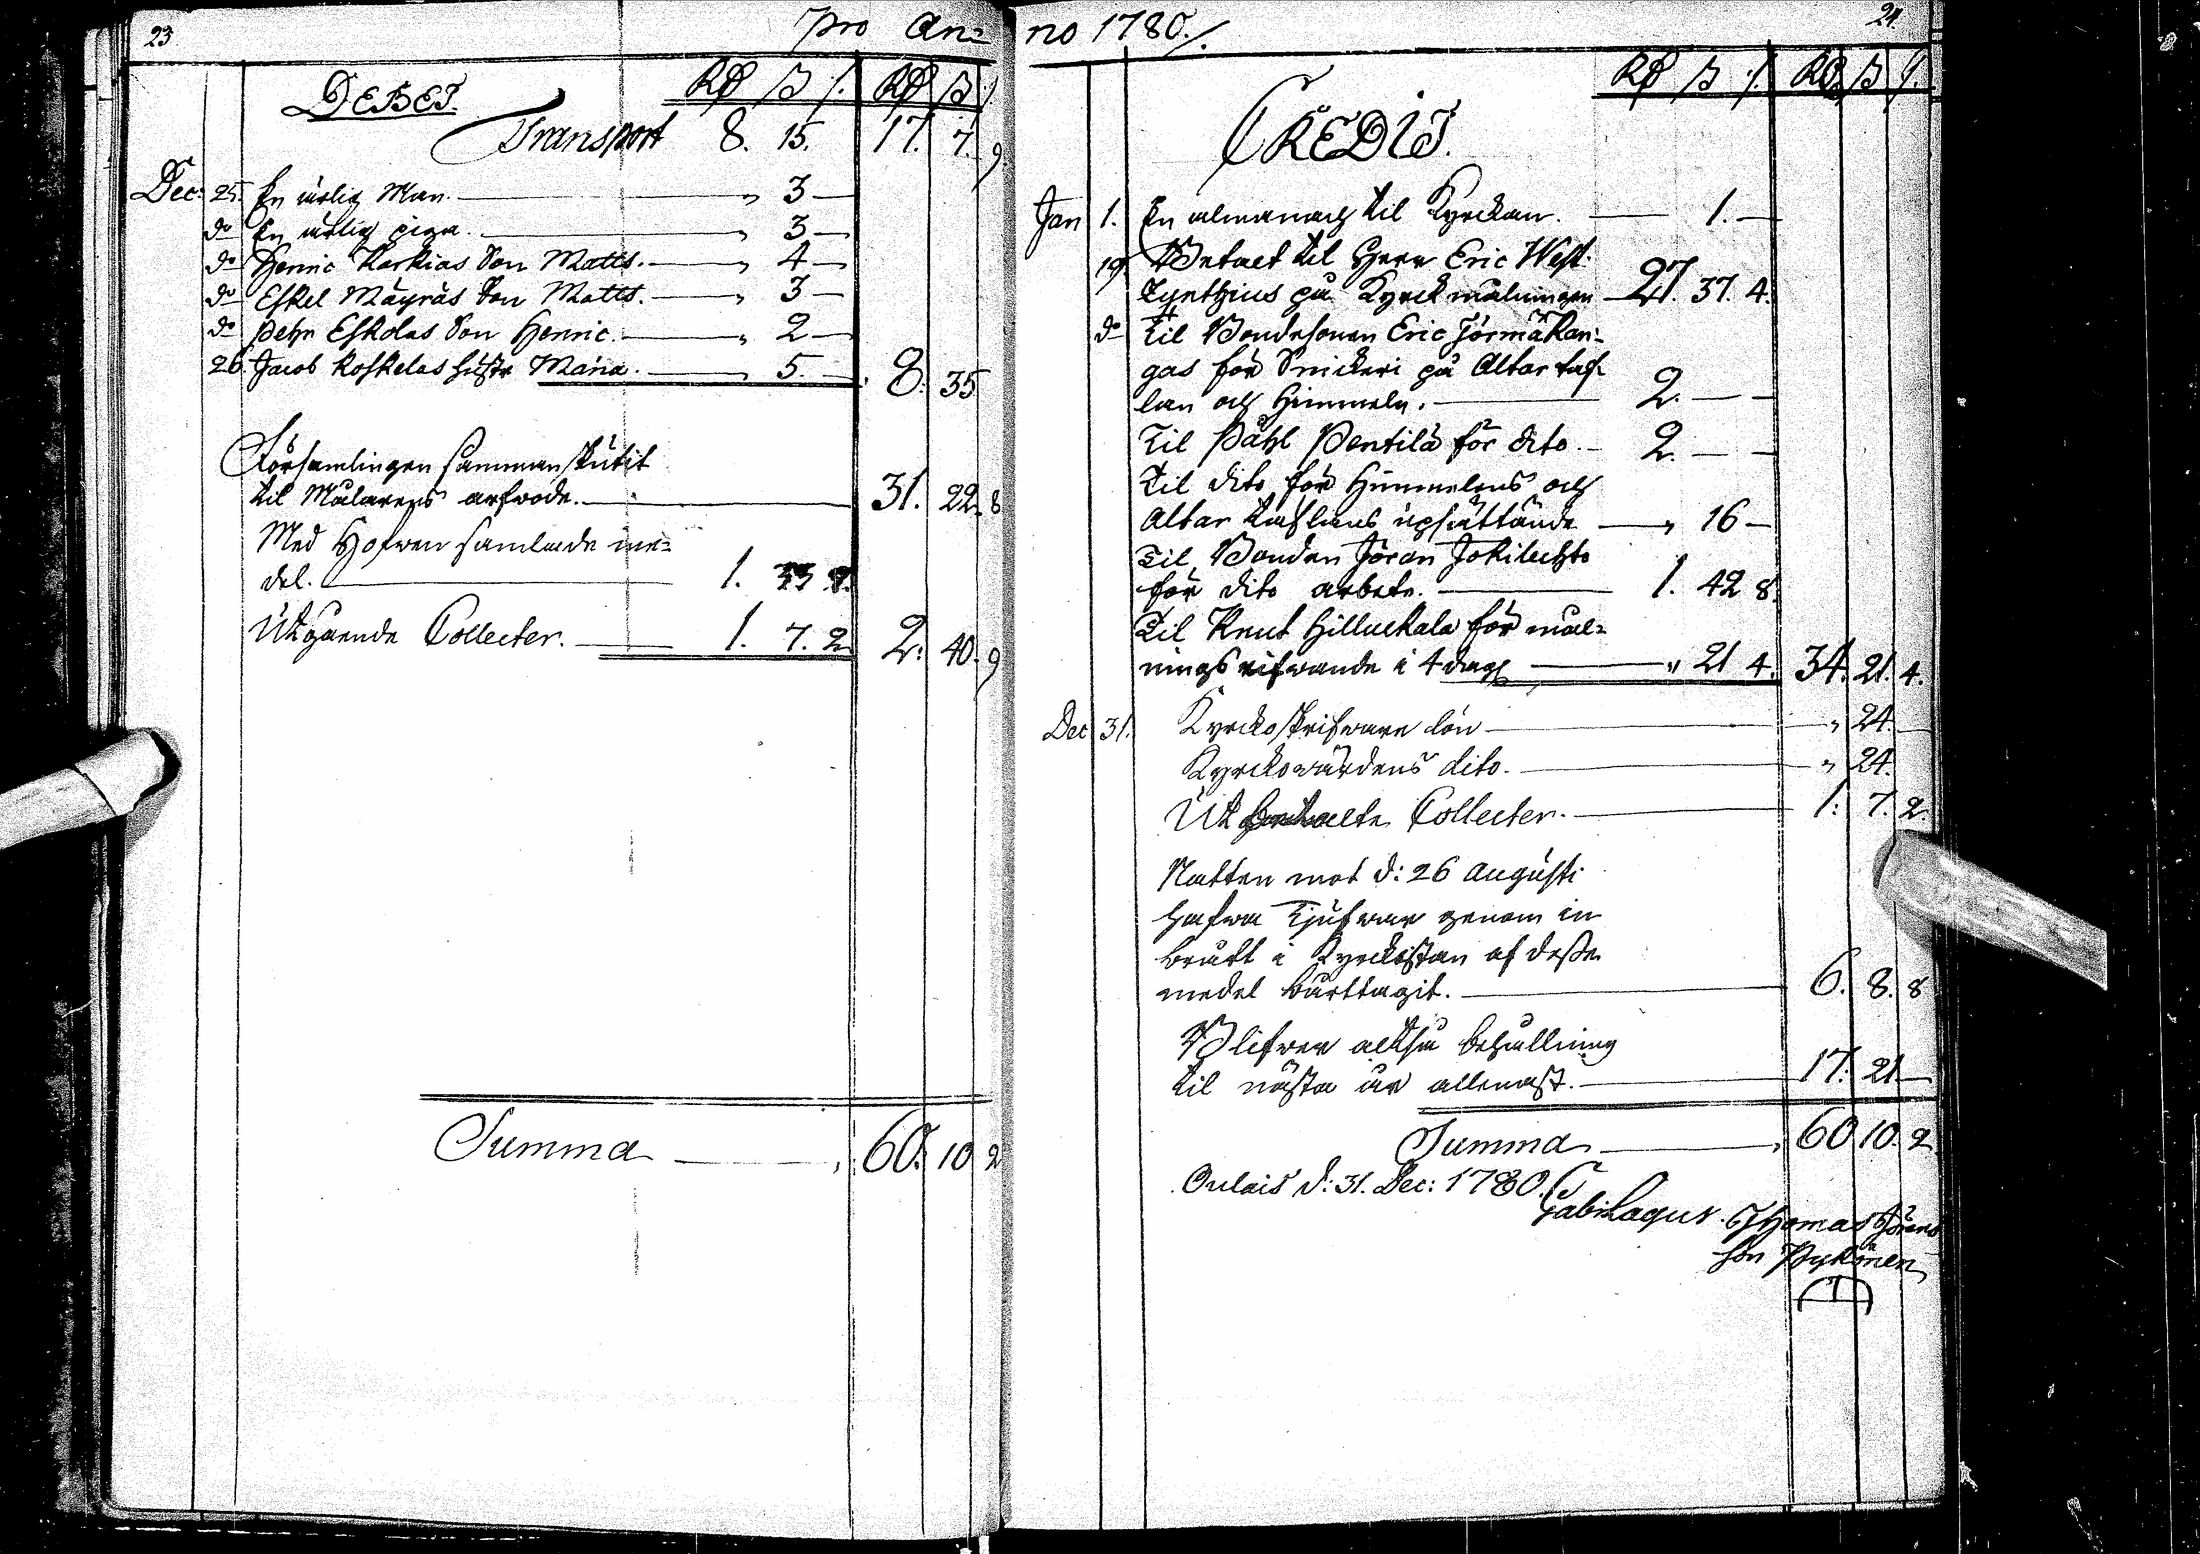 23
pro An=
DEBET.
Rd ß /.
Rd ß /.
Transport 8. 15. 17. 7. 9.
Dec: 25. En ärlig Man. " 3 —
do En ärlig piga. " 3 —
do Henric Karkias Son Matts. " 4 —
do Eskel Mäyräs Son Matts. " 3 —
do Pehr Eskolas Son Henric. " 2 —
26. Jacob Koskelas hustr Maria. " 5. — 8. 35
Församlingen samman skutit
til Målarens arfwode. 31. 22. 8
Med Hofwen samlade me=
del. 1. 33
Utgående Collecter. 1. 7. 2 2. 40. 9
Summa 60. 10 2
no 1780./.
24.
CREDIT.
Rd ß /.
Rd ß /.
Jan 1. En almanach til Kyrckan. 1. —
19 Betalt til Herr Eric West:
på Kyrck målningen 27. 37. 4.
do Til Bondesonen Eric Jörmäkan:
gas för Snickeri på Altar taf:
lan och Himmeln. 2. — —
Til Påhl Pentilä för dito. 2. — —
Til dito för Himmelens och
Altar taflans upsättande " 16 —
Til Bonden Jöran Jokilehto
för dito arbete. 1. 42 8.
Til Knut Hilluckala för mål=
nings rifwande i 4 dagr " 21 4. 34. 21. 4.
Dec 31. Kyrckoskrifware lön " 24. —
Kyrckowärdens dito. " 24.
Ut Collecter. 1. 7. 2
Natten mot d: 26 Augusti
hafwa Tjufwar genom in
brutt i Kyrckistan af desse
medel burttagit. 6. 8. 8
Blifwer altså behållning
til nästa år allenast. 17. 21 —
Summa 60 10. 2
Oulais d: 31. Dec: 1780.
Gab: Lagus. Thomas Jörans
son Pyköinen